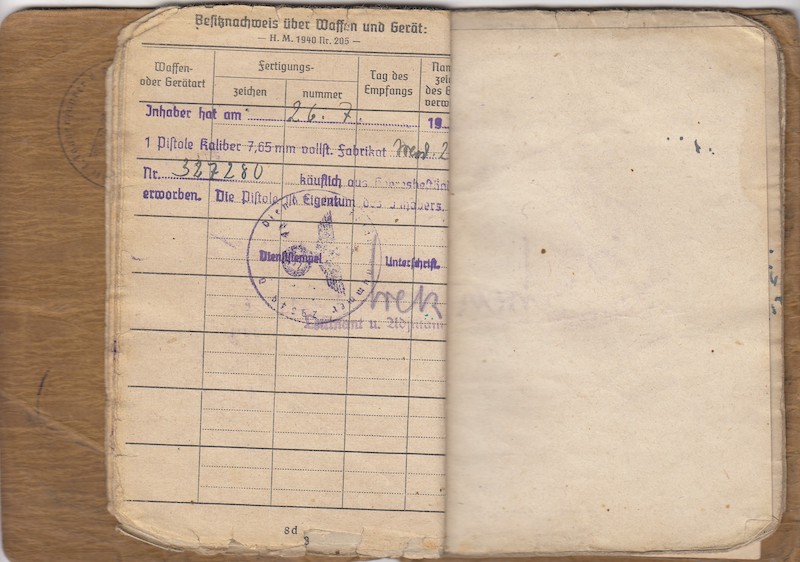 Besitznachweis über Waffen und Gerät:
— H. M. 1940 Nr. 205 —
Waffen-
oder Gerätart
Fertigungs-
zeichen
nummer
Tag des
Empfangs
Inhaber hat am 26. 7. 19
1 Pistole Kaliber 7,65 mm vollst. Fabrikat
Nr. 327280 käuflich aus
erworben. Die Pistole ist Eigentum des Inhabers.
Dienststempel
Unterschrift.
Leutnant u.
8d